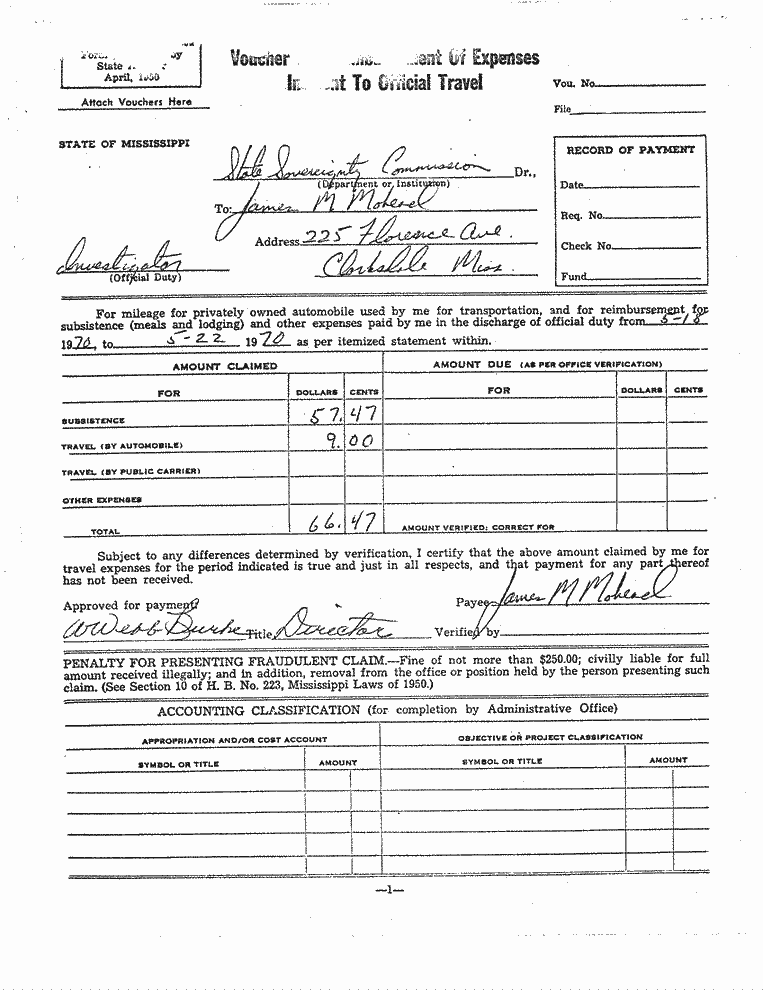 State
April, 1950
Attach Vouchers Here
Voucher Of Expenses
To Official Travel
Vou. No.
File
STATE OF MISSISSIPPI
State Sovereignty Commission Dr.,
(Department or Institution)
To: James M Mohead
Address 225 Florence Ave.
Clarksdale Miss.
Investigator
(Official Duty)
RECORD OF PAYMENT
Date
Req. No.
Check No.
Fund
For mileage for privately owned automobile used by me for transportation, and for reimbursement for
subsistence (meals and lodging) and other expenses paid by me in the discharge of official duty from 5-18
1970, to 5-22 1970 as per itemized statement within.
AMOUNT CLAIMED AMOUNT DUE (AS PER OFFICE VERIFICATION)
FOR DOLLARS CENTS FOR DOLLARS CENTS
SUBSISTENCE 57.47
TRAVEL (BY AUTOMOBILE) 9.00
TRAVEL (BY PUBLIC CARRIER)
OTHER EXPENSES
TOTAL 66.47 AMOUNT VERIFIED; CORRECT FOR
Subject to any differences determined by verification, I certify that the above amount claimed by me for
travel expenses for the period indicated is true and just in all respects, and that payment for any part thereof
has not been received.
Approved for payment Payee James M Mohead
W Webb Burke Title Director Verified by
PENALTY FOR PRESENTING FRAUDULENT CLAIM.—Fine of not more than $250.00; civilly liable for full
amount received illegally; and in addition, removal from the office or position held by the person presenting such
claim. (See Section 10 of H. B. No. 223, Mississippi Laws of 1950.)
ACCOUNTING CLASSIFICATION (for completion by Administrative Office)
APPROPRIATION AND/OR COST ACCOUNT OBJECTIVE OR PROJECT CLASSIFICATION
SYMBOL OR TITLE AMOUNT SYMBOL OR TITLE AMOUNT
—1—